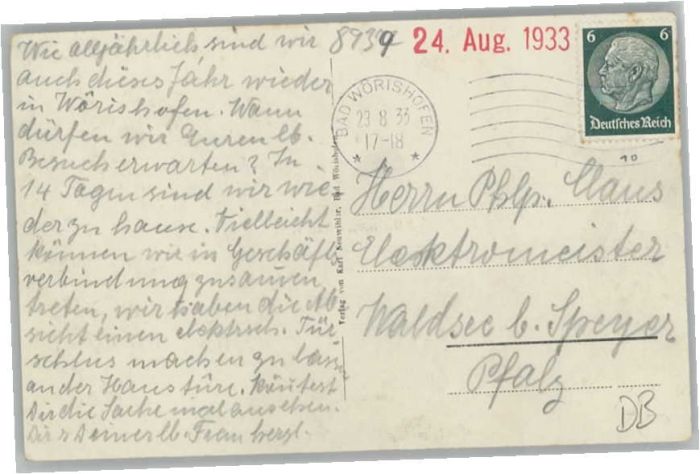 Wie alljährlich sind wir
auch dieses Jahr wieder
in Wörishofen. Wann
dürfen wir Euren lb.
Besuch erwarten? In
14 Tagen sind wir wie-
der zu hause. Vielleicht
können wir in Geschäfts
verbindung zusamen
treten, wir haben die Ab
sicht einen elektrsch. Tür
schlus machen zu lassen
an der Haustüre. Könntest
Dir die Sache mal ansehen.
Dir & Deiner lb. Frau herzl.
8939
24. Aug. 1933
6 6
Deutsches Reich
BAD WÖRISHOFEN
23 8 33
17-18
10
Verlag von Karl Bad Wörishofen
Herrn Phlp. Claus
Elektromeister
Waldsee b. Speyer
Pfalz
DB